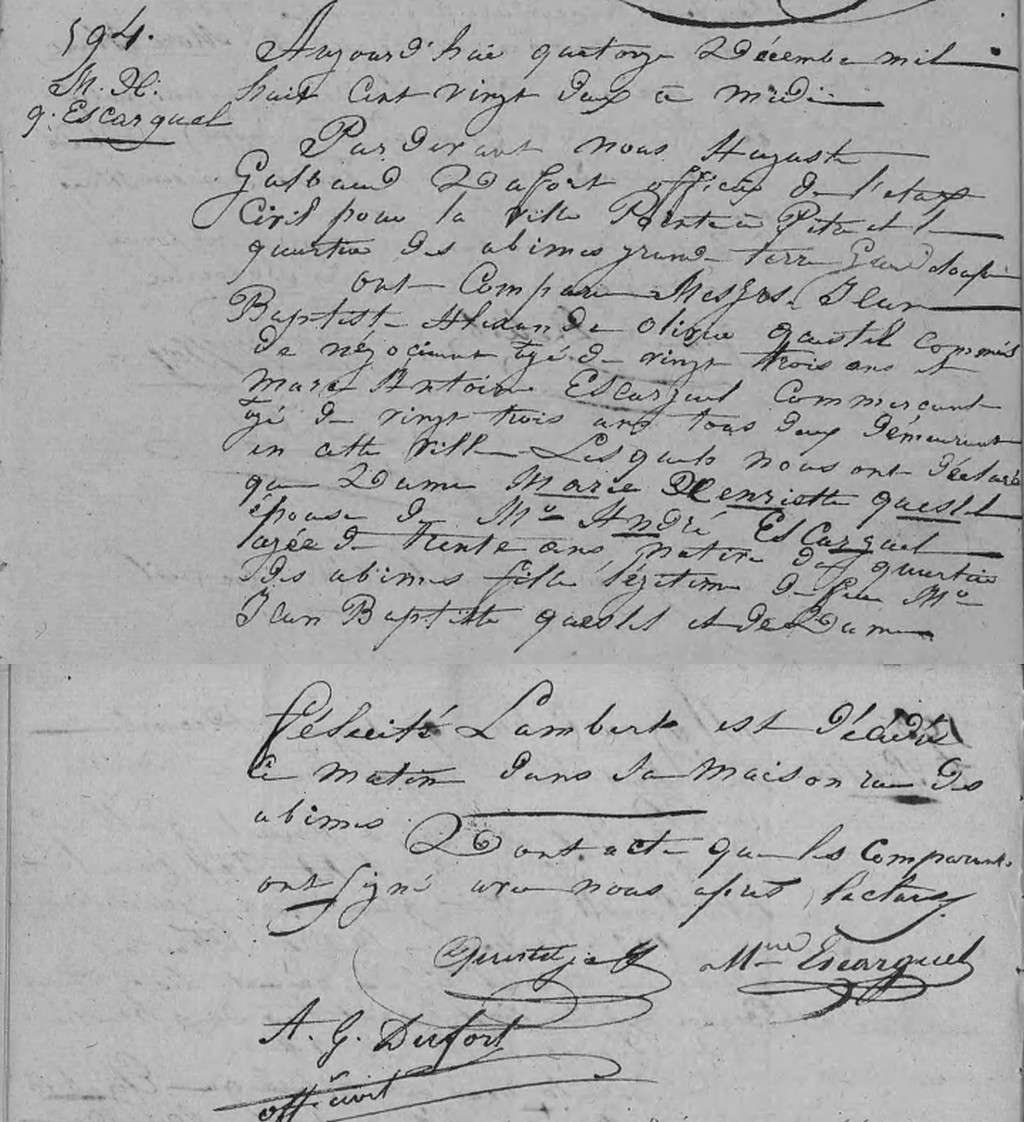 594.
M. H.
q. Escarguel
Aujourd'hui quatorze Décembre mil
huit Cent vingt deux à midi
Par devant nous Auguste
Galbaud Dufort officier de l'état
Civil pour la ville Pointe à Pitre et le
quartier des abimes grande terre Guadeloupe
ont Comparu Messrs. Jean
Baptiste Alexandre Olivier questel Commis
de négociant agé de vingt trois ans et
Marc Antoine Escarguel Commerçant
agé de vingt trois ans tous deux démeurant
en cette ville Lesquels nous ont déclaré
que Dame Marie Henriette questel
épouse de Mr. André Escarguel
agée de trente ans native du quartier
des abimes fille légitime de feu Mr.
Jean Baptiste questel et de Dame
félicité Lambert est décédée
Ce matin dans sa maison rue des
abimes
Dont acte que les Comparants
ont Signé avec nous après lecture
Questel
Escarguel
A. G. Dufort
off. civil